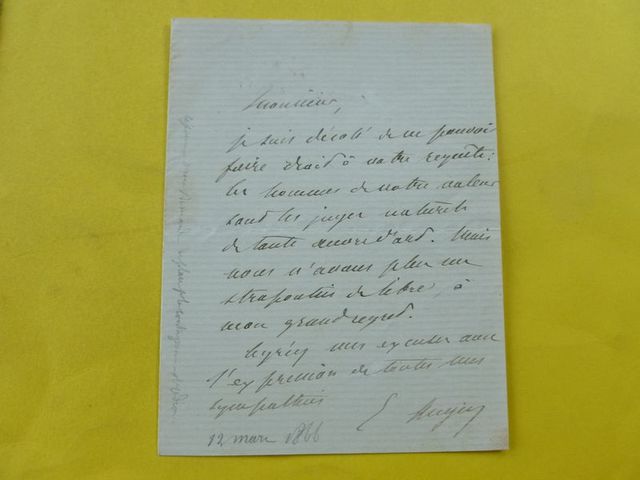 Monsieur,
je suis désolé de ne pouvoir
faire droit à votre requête;
les hommes de votre valeur
sont les juges naturels
de toute œuvre d'art. Mais
nous n'avons plus un
strapontin de libre, à
mon grand regret.
Agréez mes excuses avec
l'expression de toutes mes
sympathies
E Augier
12 mars 1866